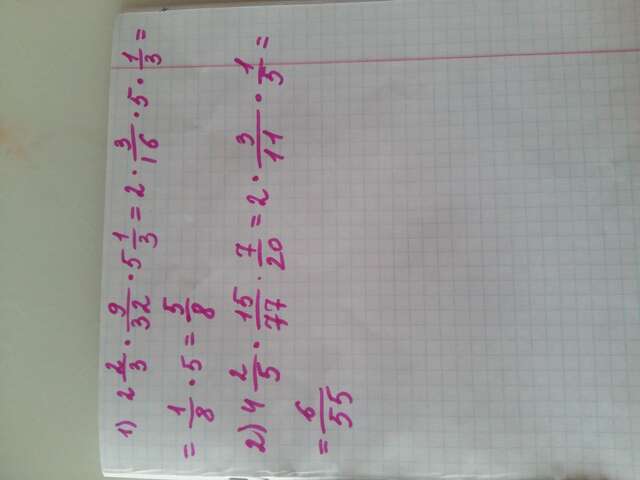 1) 2 2/3 · 9/32 · 5 1/3 = 2 · 3/16 · 5 · 1/3 =
= 1/8 · 5 = 5/8
2) 4 2/5 · 15/77 · 7/20 = 2 · 3/11 · 1/5 =
= 6/55